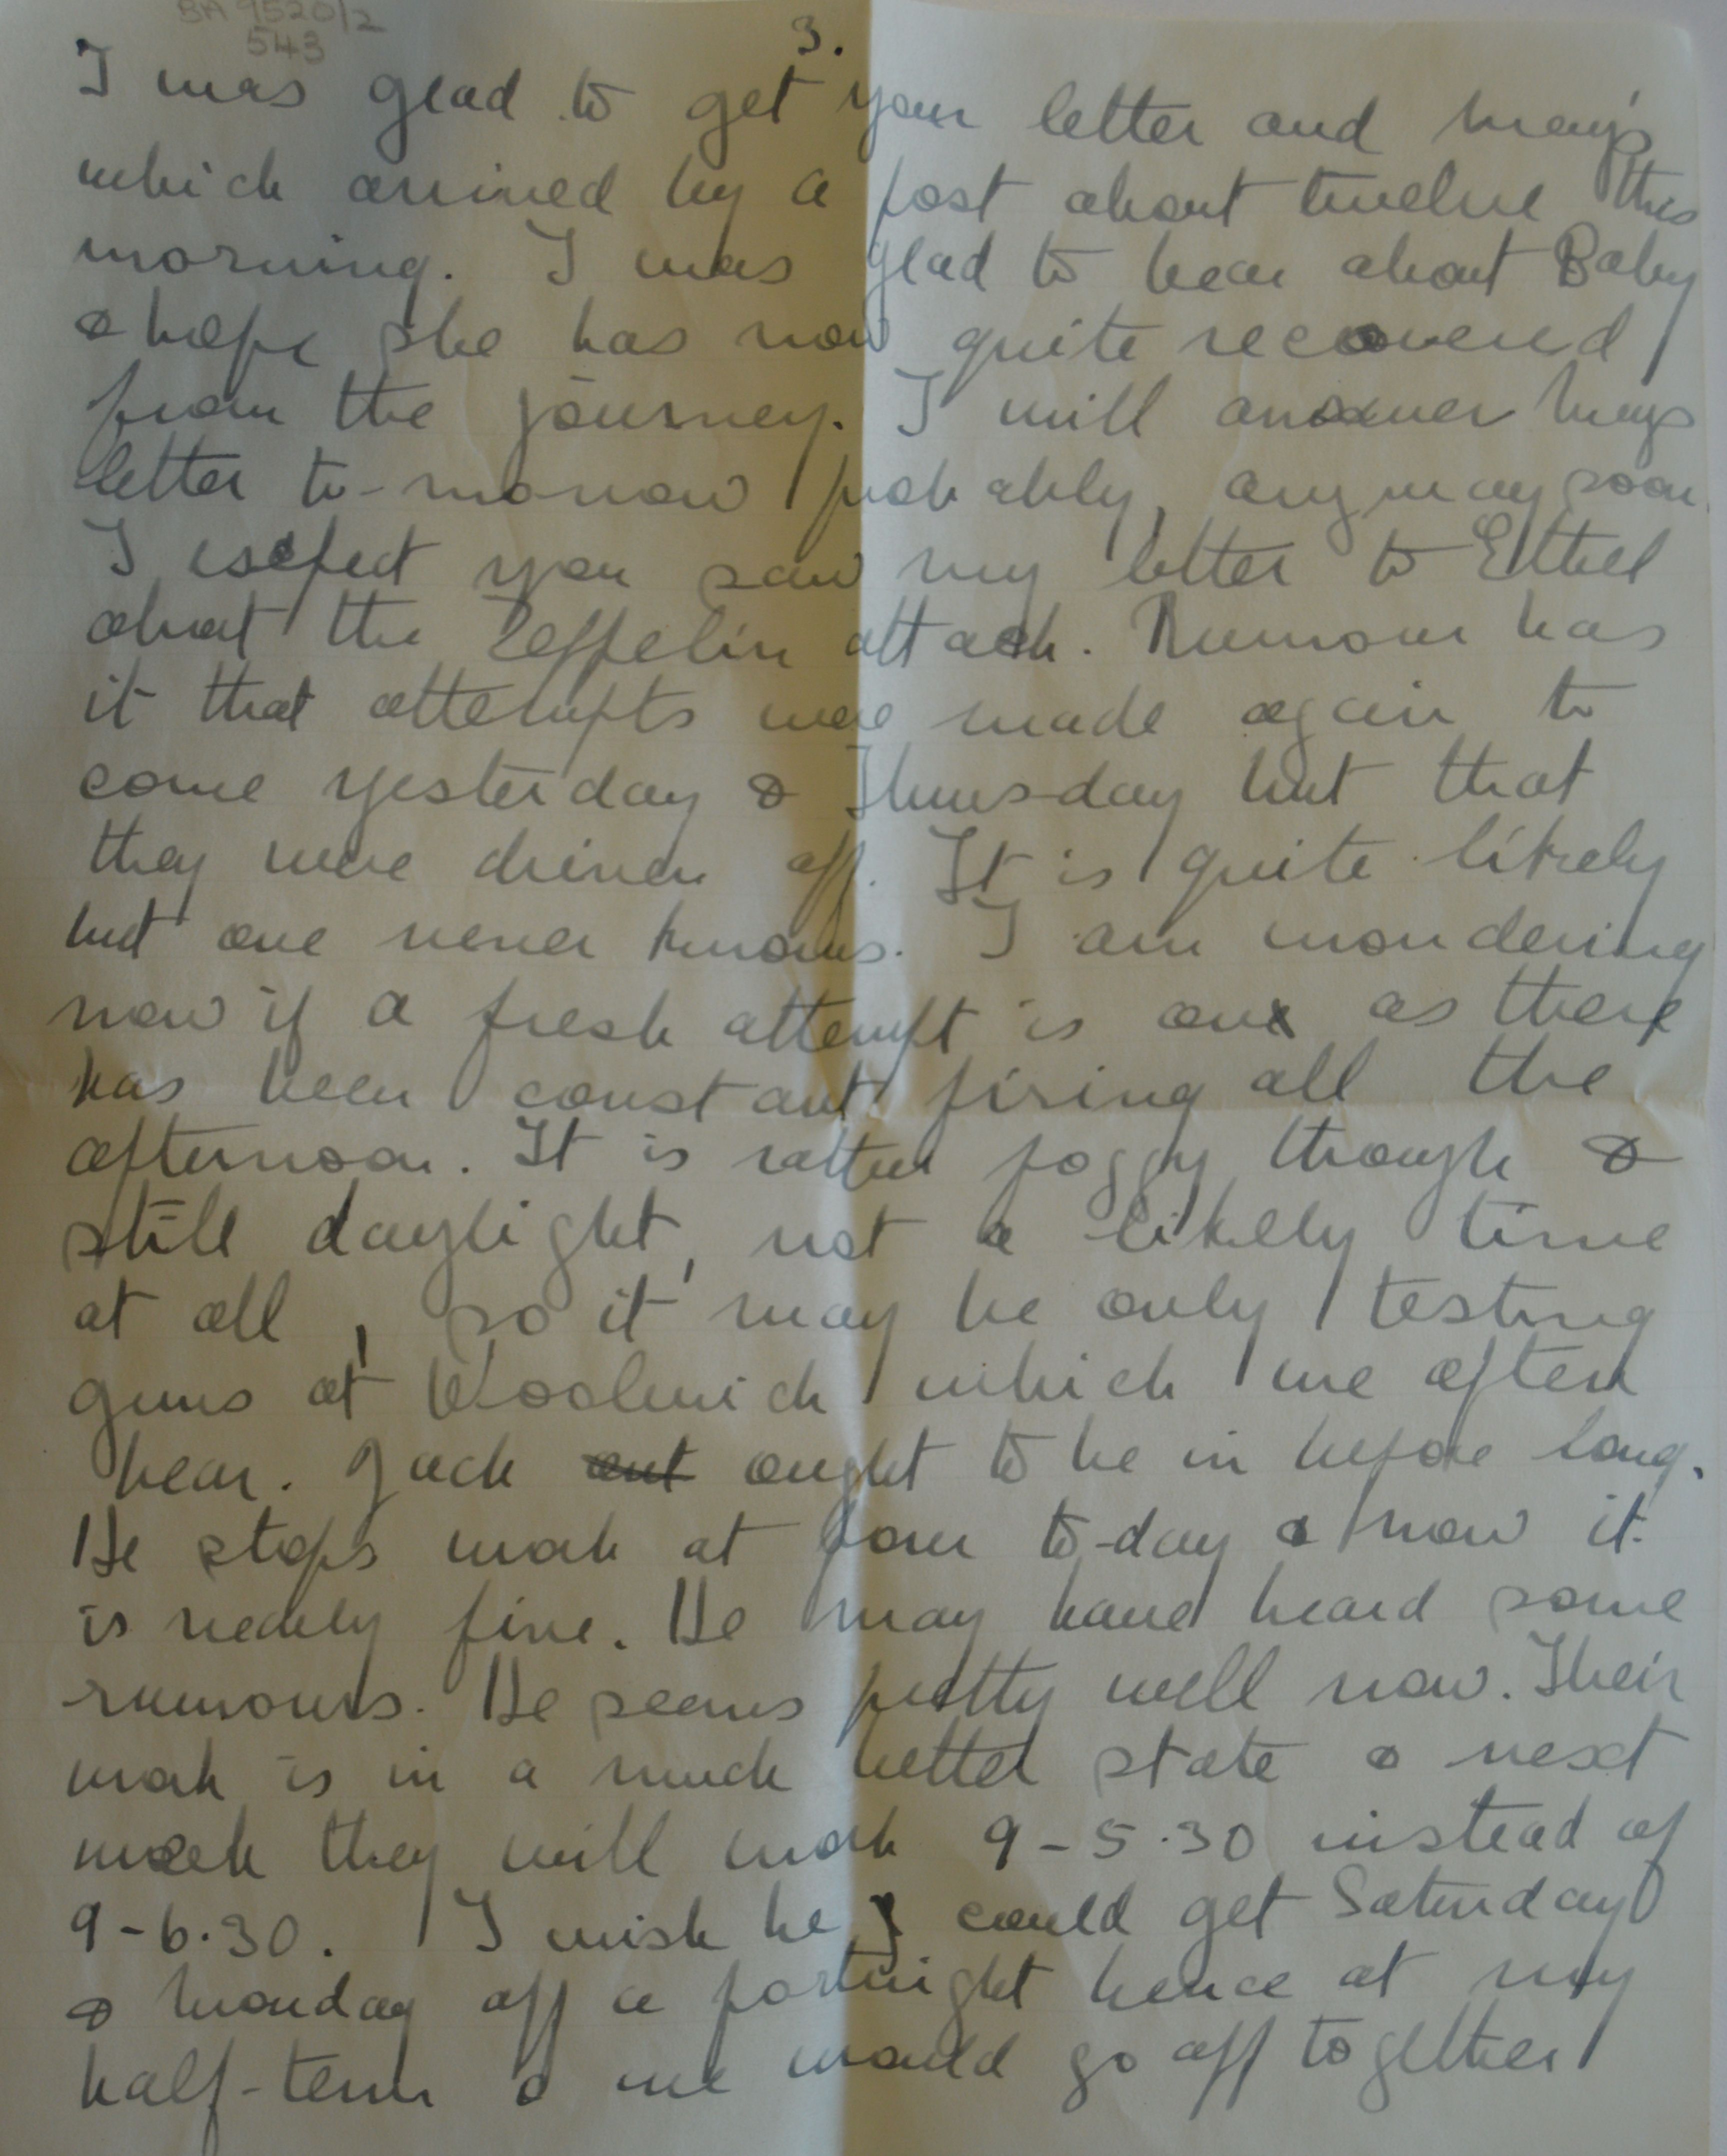 BA 9520/2
543
3.
I was glad to get your letter and May's
which arrived by a post about twelve this
morning. I was glad to hear about Baby
& hope she has now quite recovered
from the journey. I will answer Mays
letter to-morrow probably, anyway soon.
I expect you saw my letter to Ethel
about the Zeppelin attack. Rumour has
it that attempts were made again to
come yesterday & Thursday but that
they were driven off. It is quite likely
but one never knows. I am wondering
now if a fresh attempt is on as there
has been constant firing all the
afternoon. It is rather foggy though &
still daylight, not a likely time
at all, so it may be only testing
guns at Woolwich which we often
hear. Jack out ought to be in before long.
He stops work at four to-day & now it
is nearly five. He may have heard some
rumours. He seems pretty well now. Their
work is in a much better state & next
week they will work 9-5.30 instead of
9-6.30. I wish he could get Saturday
& Monday off a fortnight hence at my
half-term & we would go off together